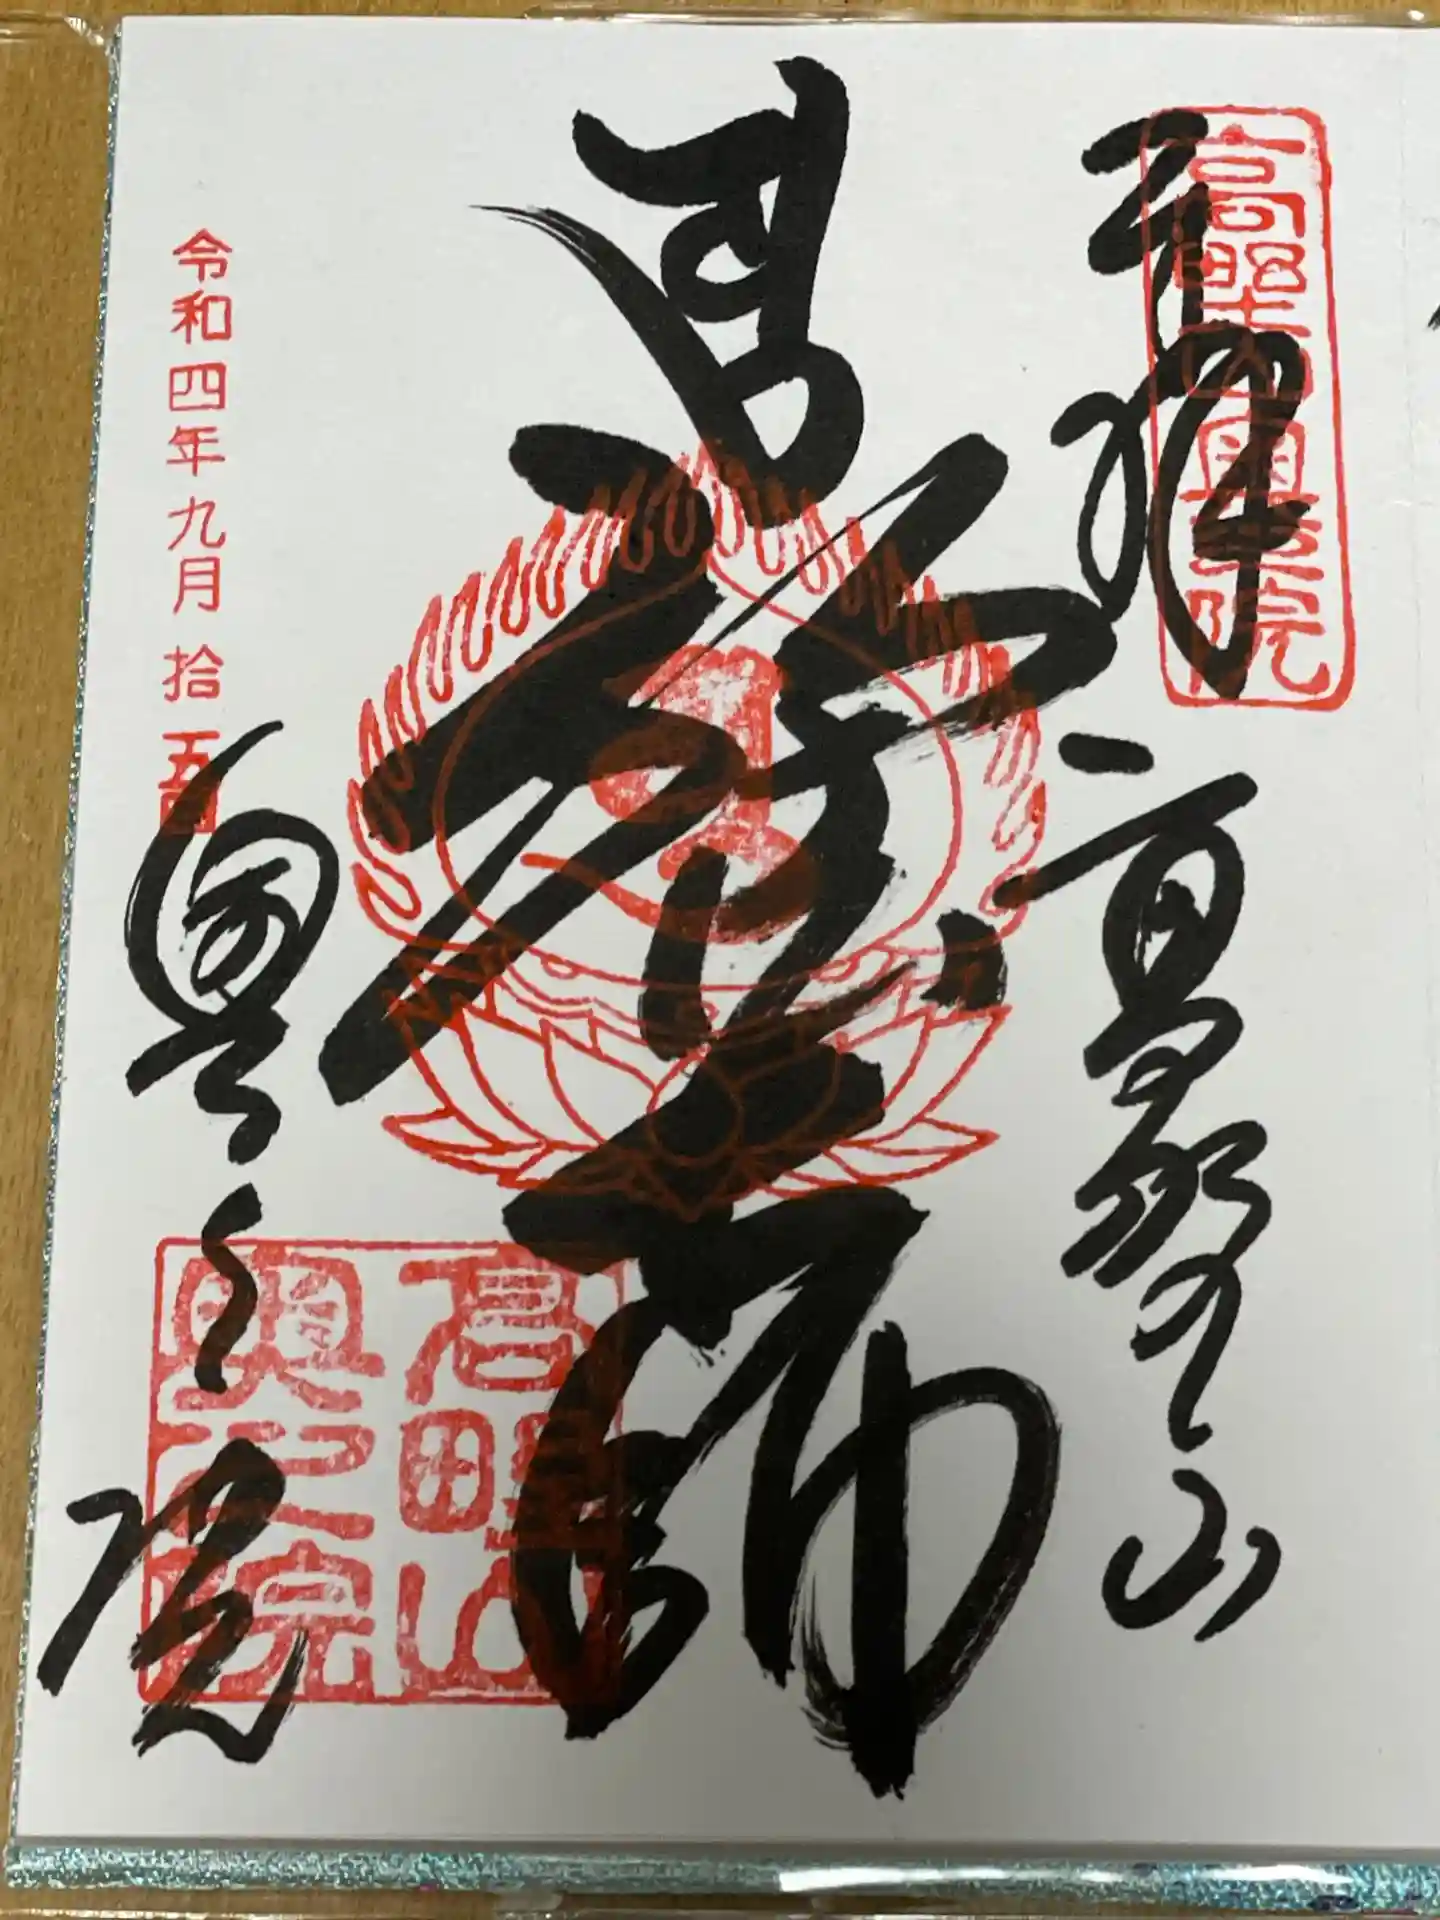 奉拝 高野山
高野山奥之院
弘法大師
令和四年九月拾五日
奥之院
高野山
奥之院